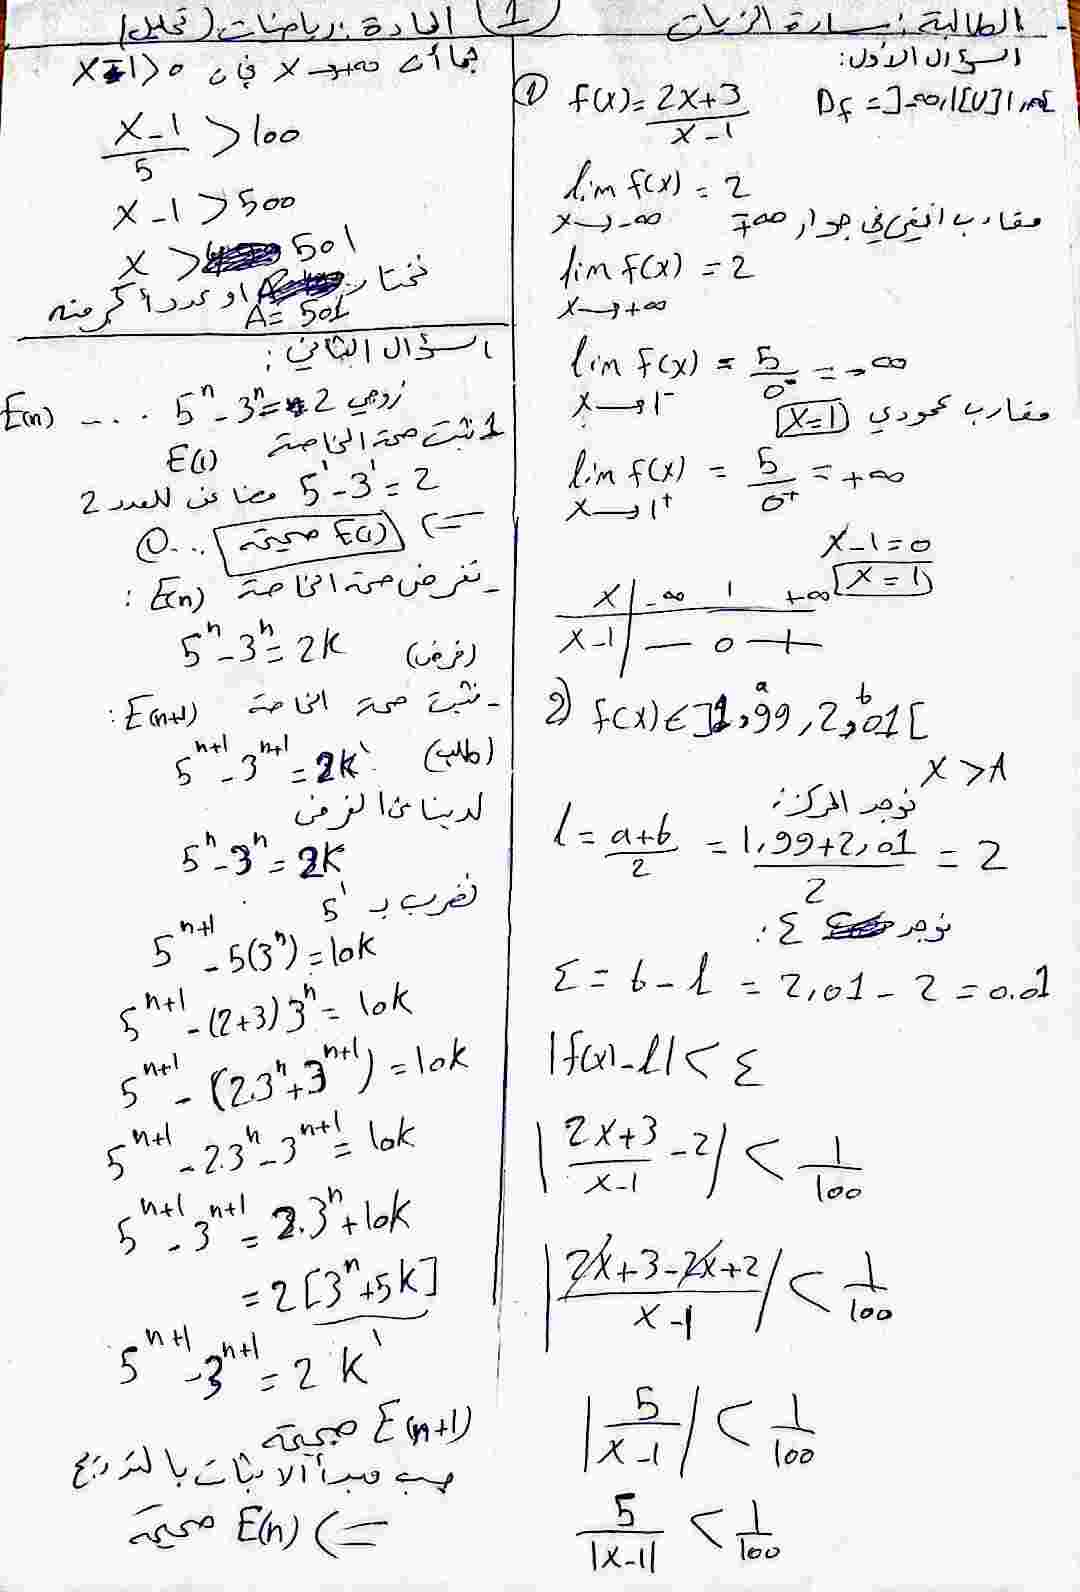 الطالبة: سارة الزيات 1 المادة: رياضيات (تحليل)
السؤال الأول:
① f(x) = 2x+3 / x-1 Df = ]-∞,1[∪]1,+∞[
lim f(x) = 2
x→-∞ مقارب افقي في جوار ∓∞
lim f(x) = 2
x→+∞
lim f(x) = 5/0⁻ = -∞
x→1⁻ x=1 مقارب عمودي
lim f(x) = 5/0⁺ = +∞
x→1⁺
x-1=0
x=1
x | -∞ 1 +∞
x-1 | - 0 +
2) f(x) ∈ ]1,99 , 2,01[
a b
x > A
نوجد المركز:
l = a+b / 2 = 1,99+2,01 / 2 = 2
نوجد ε:
ε = b - l = 2,01 - 2 = 0.01
|f(x) - l| < ε
|2x+3 / x-1 - 2| < 1/100
|2x+3-2x+2 / x-1| < 1/100
|5 / x-1| < 1/100
5 / |x-1| < 1/100
بما أن x→+∞ فإن x-1>0
x-1 / 5 > 100
x-1 > 500
x > 501
نختار او عدد أكبر منه
A = 501
السؤال الثاني:
E(n) .... 5ⁿ - 3ⁿ = 2 زوجي
نثبت صحة الخاصة E(1)
5¹ - 3¹ = 2 مضاعف للعدد 2
⇐ E(1) صحيحة ...①
- نفرض صحة الخاصة E(n):
5ⁿ - 3ⁿ = 2k (فرض)
- نثبت صحة الخاصة E(n+1):
5ⁿ⁺¹ - 3ⁿ⁺¹ = 2k' (طلب)
لدينا من الفرض
5ⁿ - 3ⁿ = 2k
نضرب بـ 5¹
5ⁿ⁺¹ - 5(3ⁿ) = 10k
5ⁿ⁺¹ - (2+3)3ⁿ = 10k
5ⁿ⁺¹ - (2.3ⁿ + 3ⁿ⁺¹) = 10k
5ⁿ⁺¹ - 2.3ⁿ - 3ⁿ⁺¹ = 10k
5ⁿ⁺¹ - 3ⁿ⁺¹ = 2.3ⁿ + 10k
= 2[3ⁿ + 5k]
5ⁿ⁺¹ - 3ⁿ⁺¹ = 2k'
E(n+1) صحيحة
حسب مبدأ الاثبات بالتدريج
⇐ E(n) صحيحة